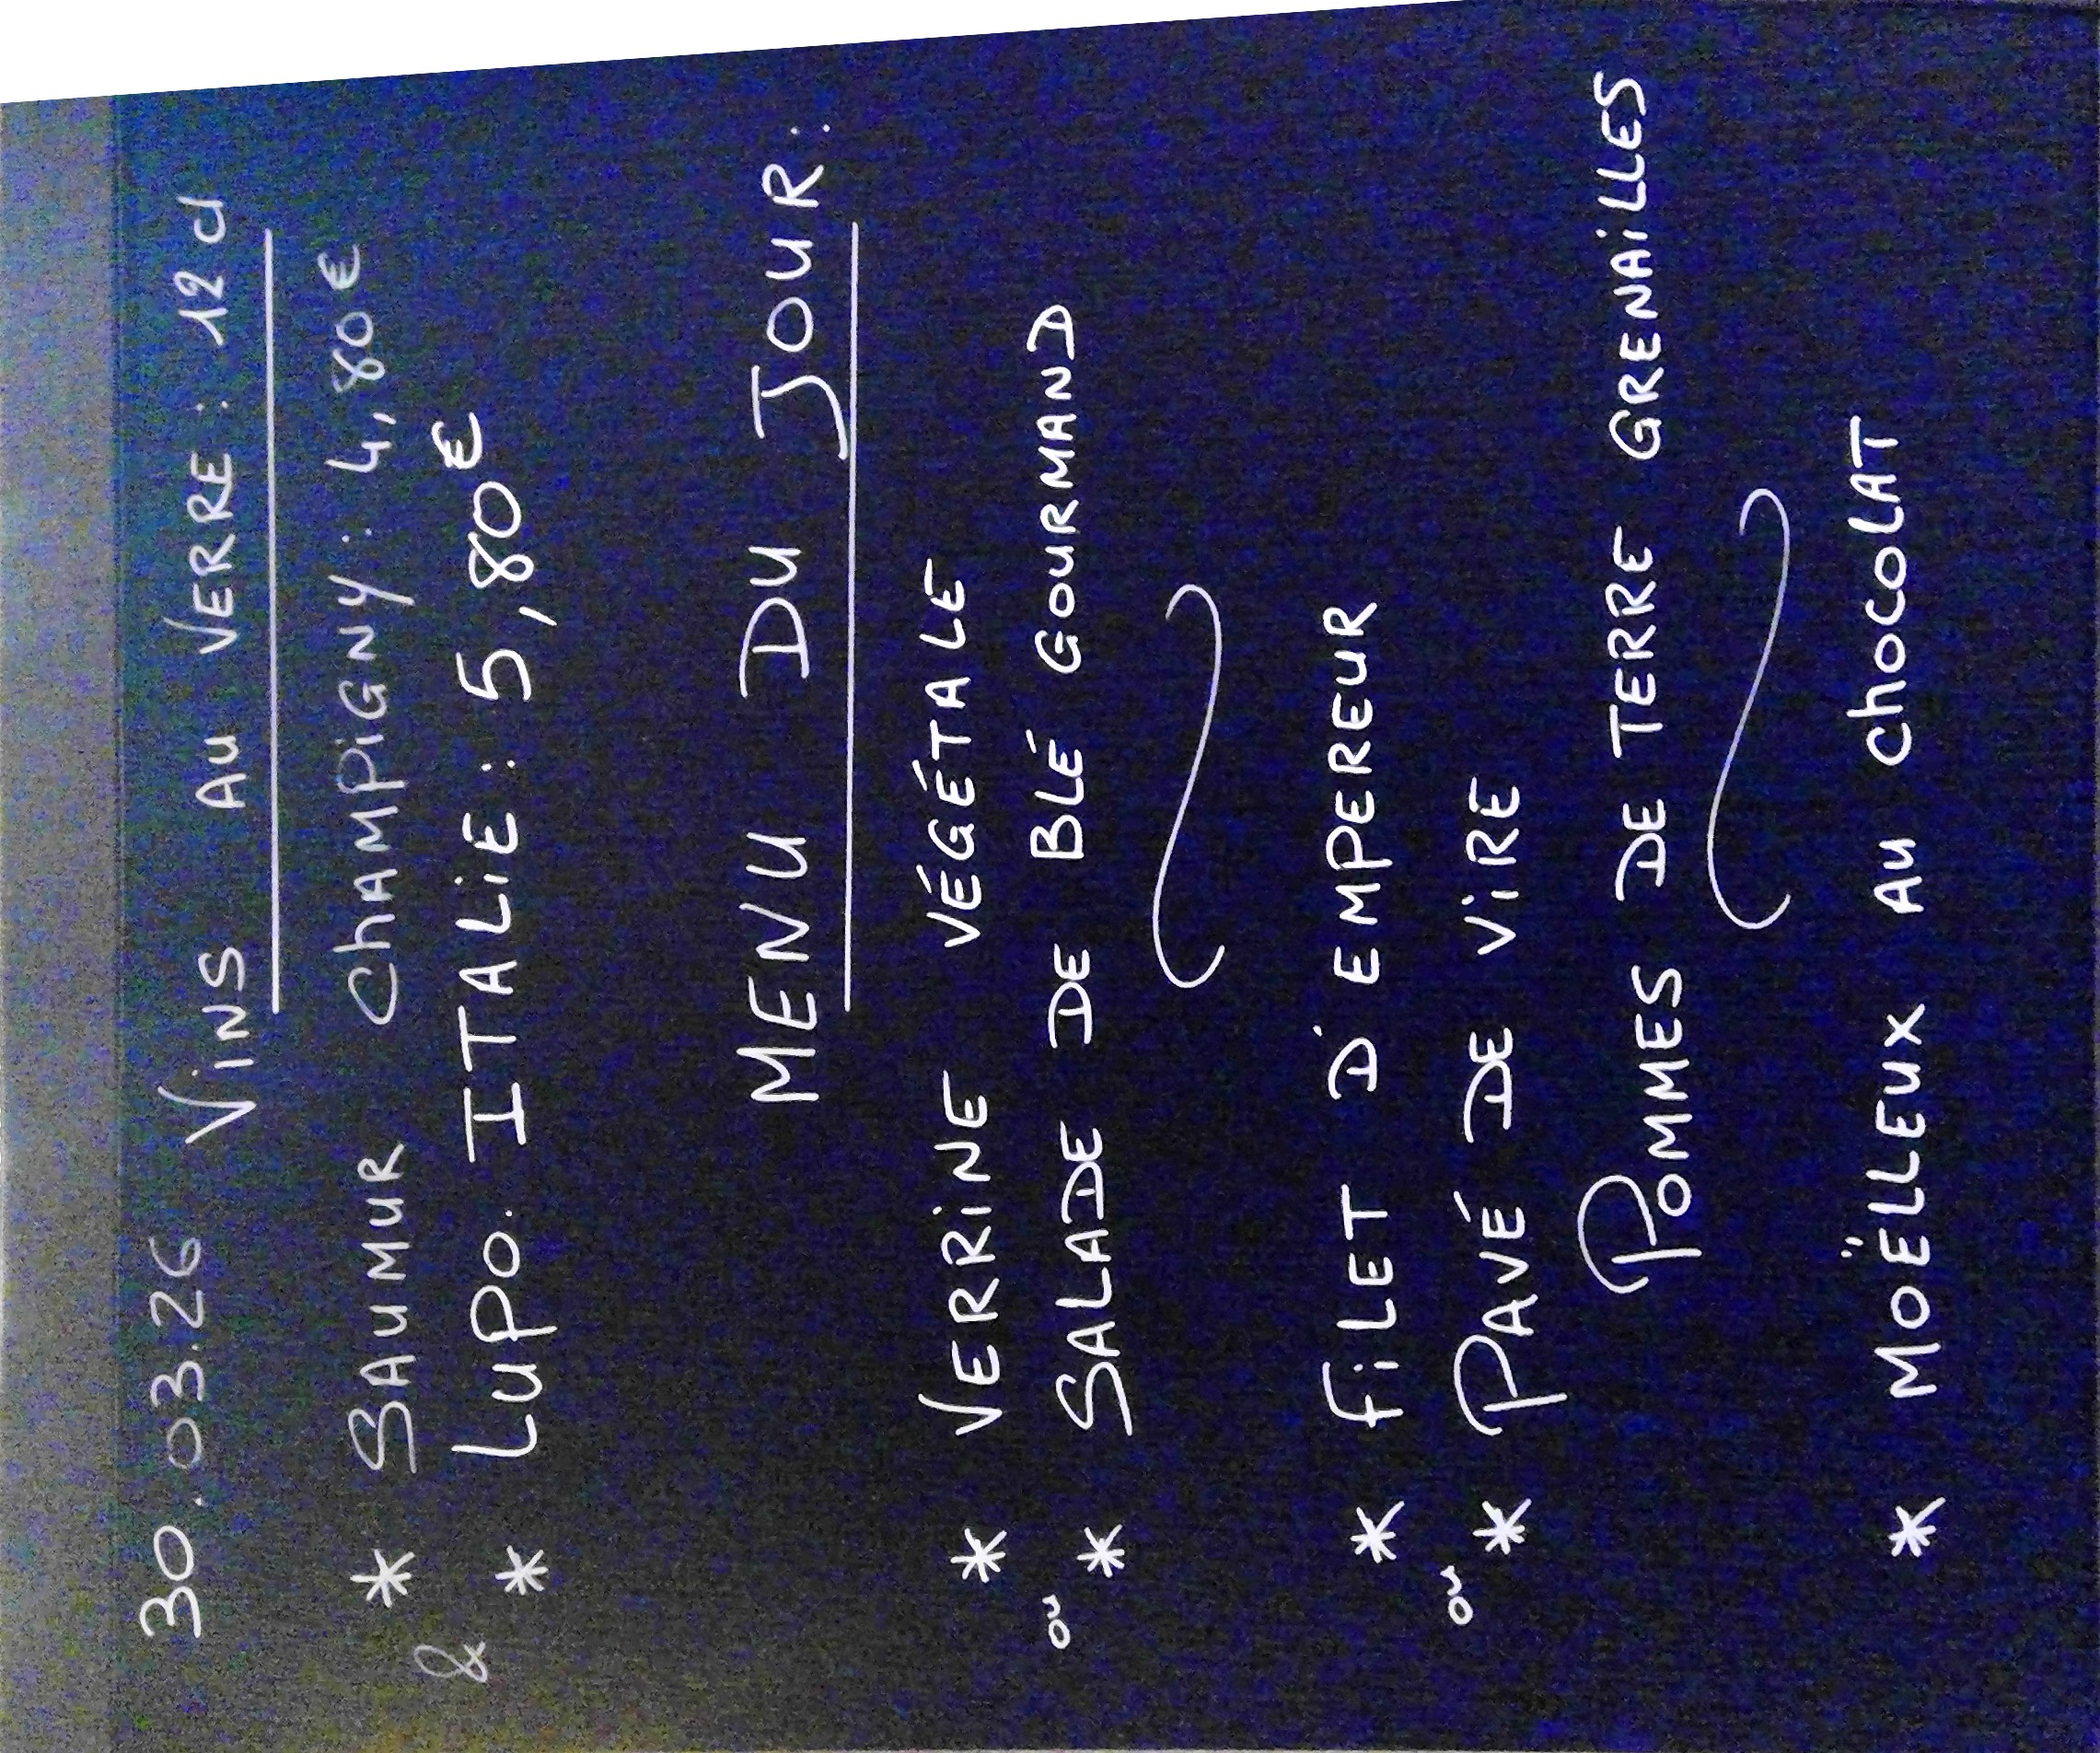 30.03.26 Vins au Verre : 12 cl
* Saumur Champigny : 4,80 €
&
* Lupo. Italie : 5,80 €
MENU DU JOUR :
* VERRINE VÉGÉTALE
ou
* SALADE DE BLÉ GOURMAND
* FILET D'EMPEREUR
ou
* PAVÉ DE VIRE
POMMES DE TERRE GRENAILLES
* MOËLLEUX AU CHOCOLAT